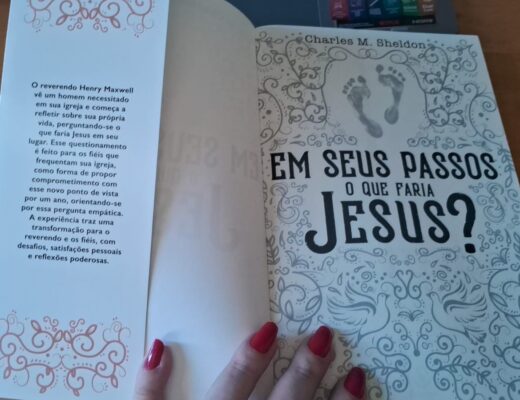 O reverendo Henry Maxwell
vê um homem necessitado
em sua igreja e começa a
refletir sobre sua própria
vida, perguntando-se o
que faria Jesus em seu
lugar. Esse questionamento
é feito para os fiéis que
frequentam sua igreja,
como forma de propor
comprometimento com
esse novo ponto de vista
por um ano, orientando-se
por essa pergunta empática.
A experiência traz uma
transformação para o
reverendo e os fiéis, com
desafios, satisfações pessoais
e reflexões poderosas.
Charles M. Sheldon
EM SEUS PASSOS
O QUE FARIA
JESUS?